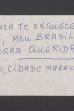 CA TE ESQUECE
, MEU BRASIL
ERRA QUERIDA
, CIDADE MARAV